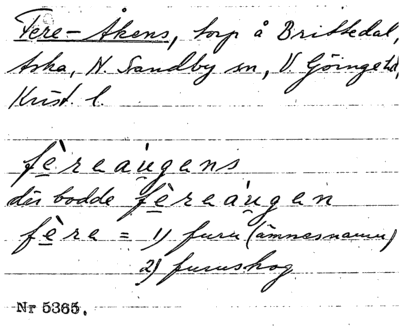 Fere-Åkens, torp å Brittedal,
N. Sandby sn, V. Göinge hd,
Krist. l.
fèreáųgens
där bodde fèreáųgen
fère = 1) furu (ämnesnamn)
2) furuskog
Nr 5365.